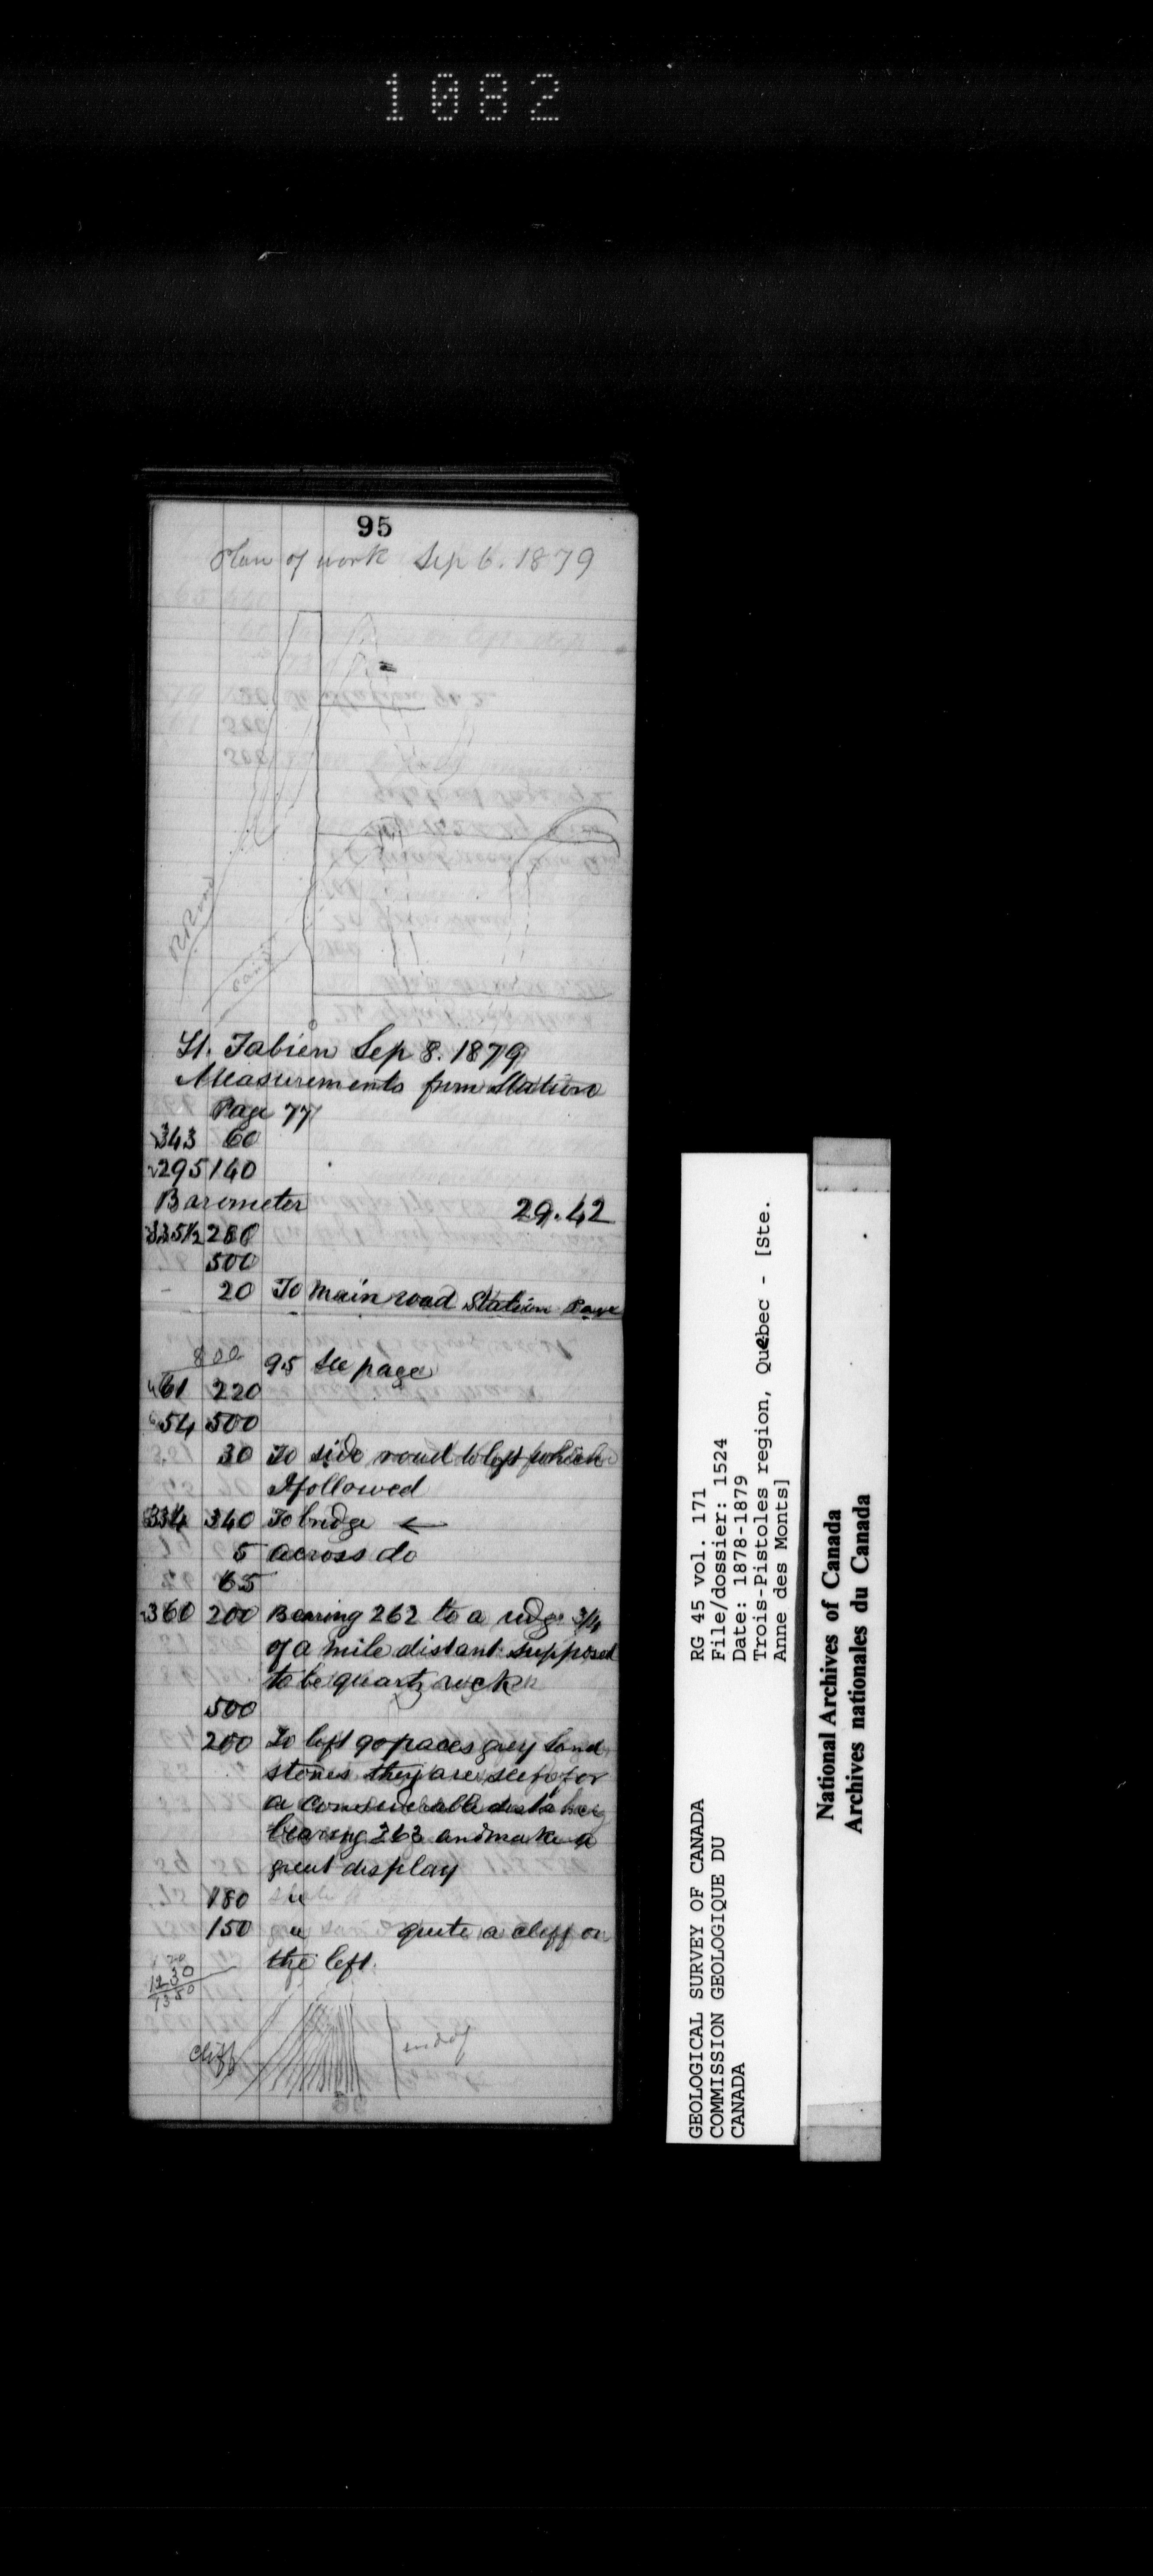 1082
95
Plan of work Sep 6. 1879
R Road
St. Fabien Sep 8. 1879
Measurements from Station
Page 77
343 60
295 140
Barometer 29.42
335½ 280
500
20 To Main road Station Page
800
95 see page
61 220
54 500
30 To side road to left which
I followed
334 340 To bridge ←
5 across do
65
360 200 Bearing 262 to a ridge 3/4
of a mile distant supposed
to be quartz rock
500
200 To left 90 paces grey sand
stones they are seen for
a considerable distance
bearing 263 and make a
great display
180 "
150 " quite a cliff on
the left.
120
1230
1350
cliff
GEOLOGICAL SURVEY OF CANADA
COMMISSION GEOLOGIQUE DU
CANADA
RG 45 vol. 171
File/dossier: 1524
Date: 1878-1879
Trois-Pistoles region, Quebec - [Ste.
Anne des Monts]
National Archives of Canada
Archives nationales du Canada